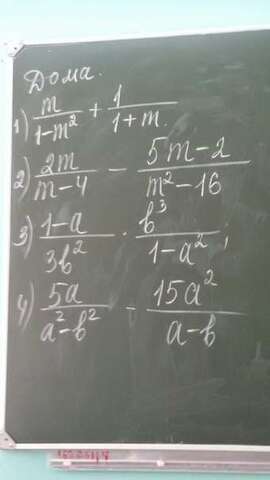 Дома.
1) m/(1-m²) + 1/(1+m).
2) 2m/(m-4) - (5m-2)/(m²-16)
3) (1-a)/(3b²) · b³/(1-a²);
4) 5a/(a²-b²) - 15a²/(a-b)